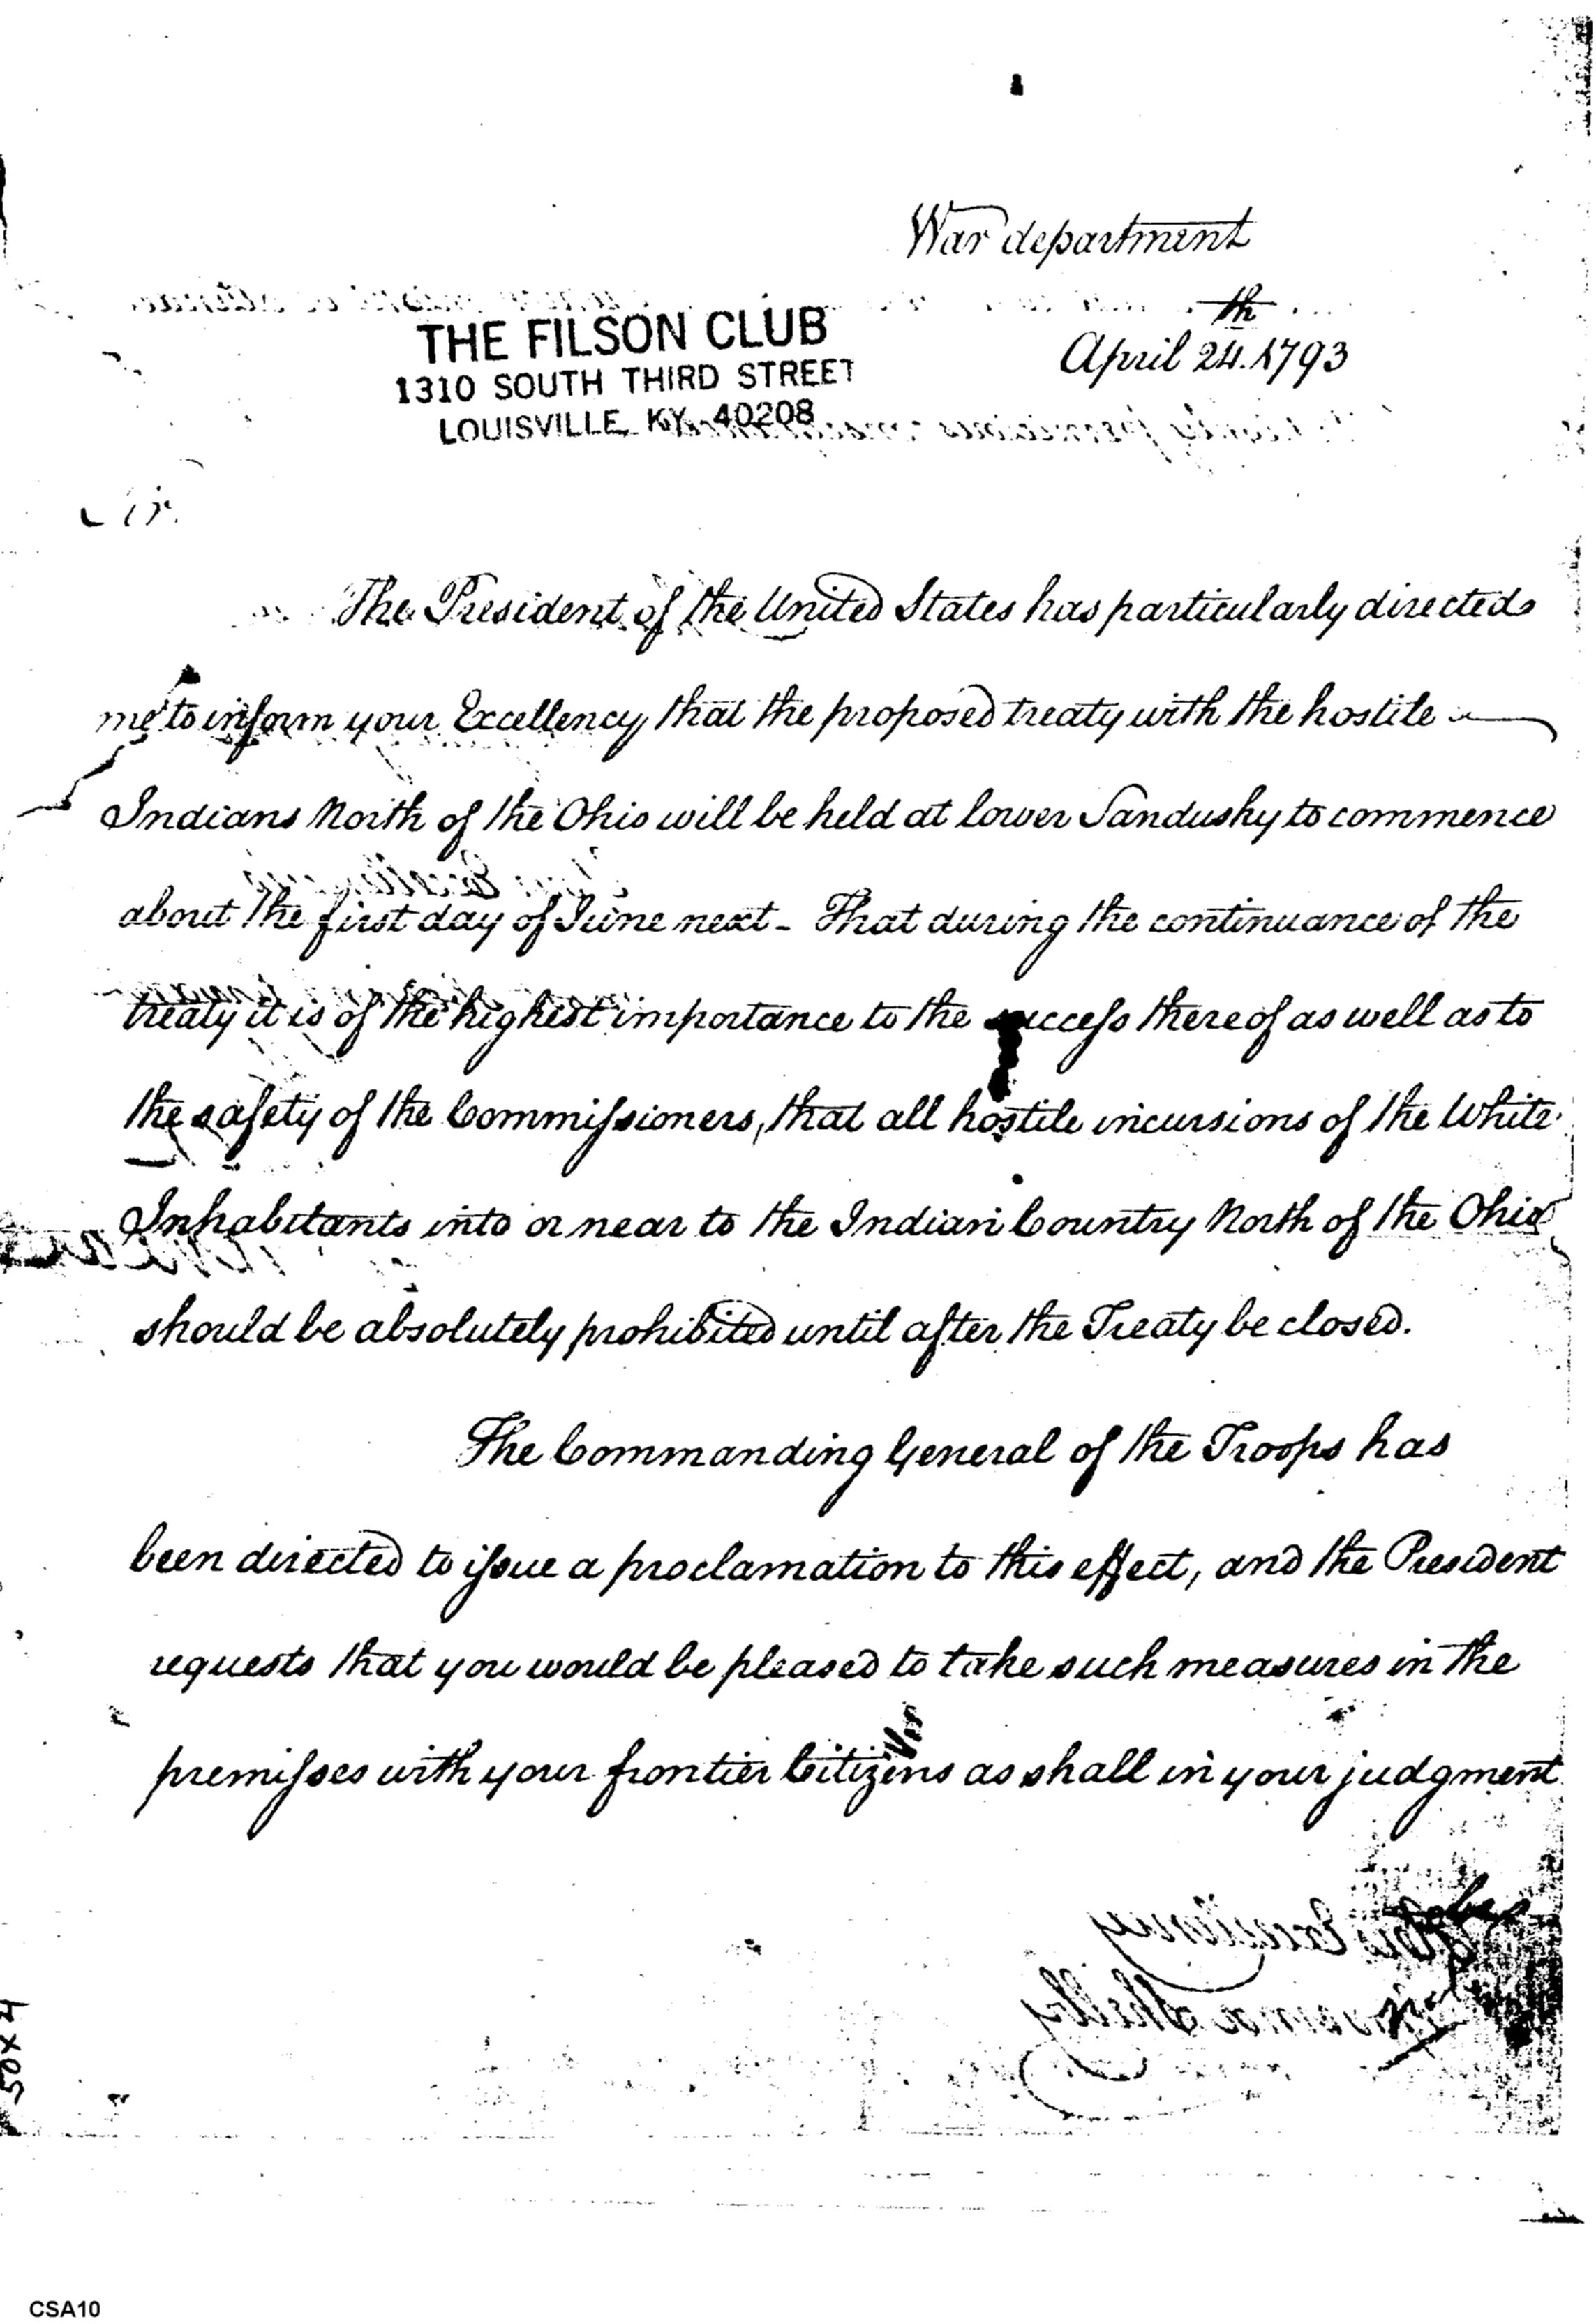 War department
April 24.th 1793
THE FILSON CLUB
1310 SOUTH THIRD STREET
LOUISVILLE, KY. 40208
Sir.
The President of the United States has particularly directed
me to inform your Excellency that the proposed treaty with the hostile
Indians North of the Ohio will be held at lower Sandusky to commence
about the first day of June next - That during the continuance of the
treaty it is of the highest importance to the success thereof as well as to
the safety of the Commissioners, that all hostile incursions of the White
Inhabitants into or near to the Indian Country North of the Ohio
should be absolutely prohibited until after the Treaty be closed.
The Commanding General of the Troops has
been directed to issue a proclamation to this effect, and the President
requests that you would be pleased to take such measures in the
premisses with your frontier Citizens as shall in your judgment
His Excellency
Governor Shelby
50x4
CSA10